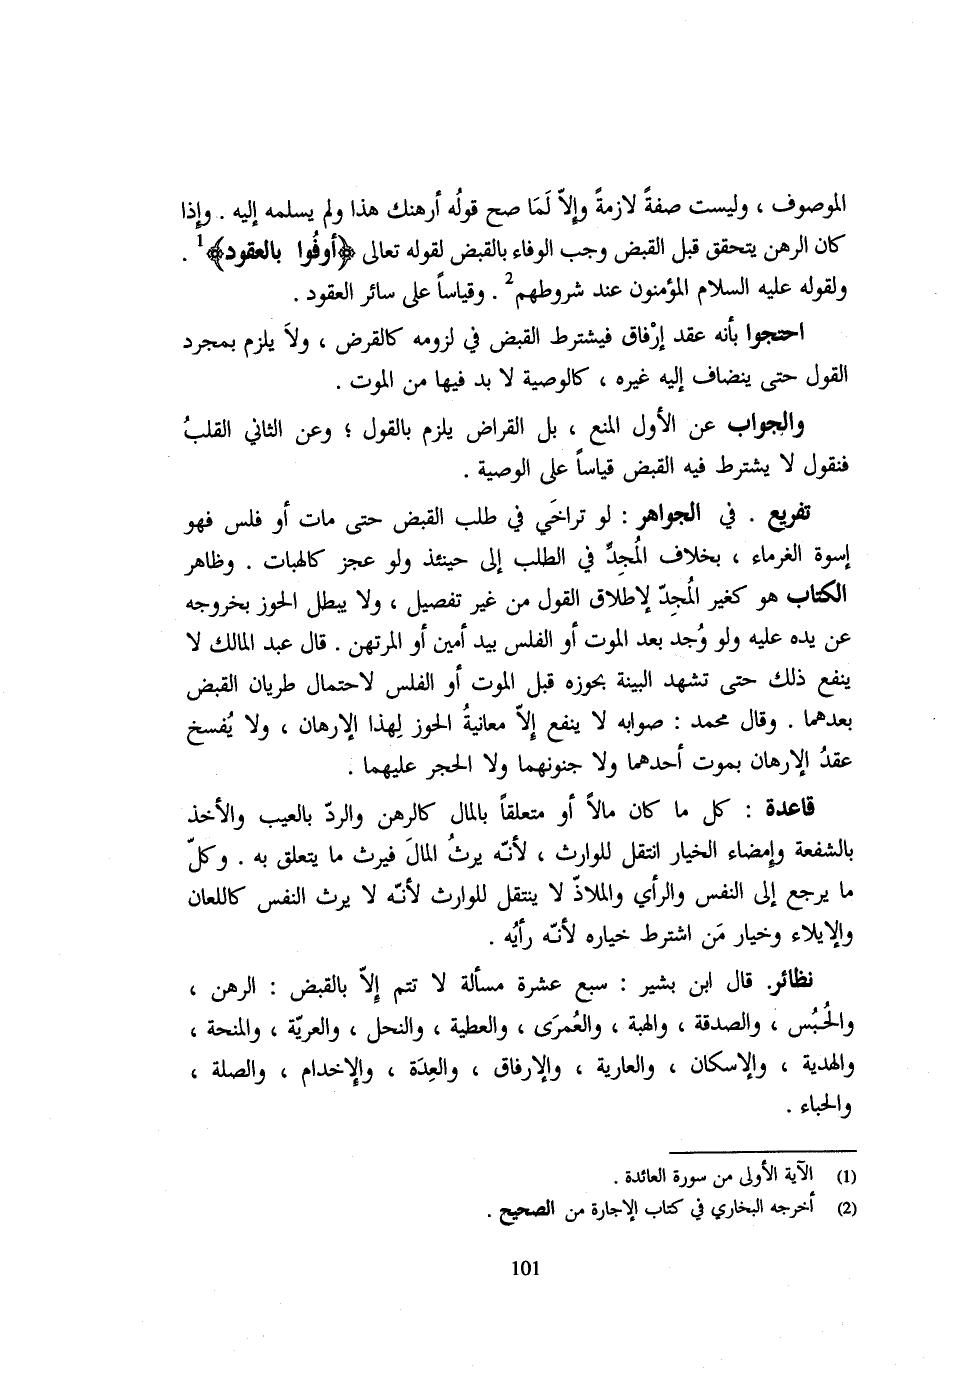 الموصوف ، وليست صفةً لازمةً وإلاّ لَمَا صح قولُه أرهنك هذا ولم يسلمه إليه . وإذا
كان الرهن يتحقق قبل القبض وجب الوفاء بالقبض لقوله تعالى ﴿أوفُوا بالعقود﴾1 .
ولقوله عليه السلام المؤمنون عند شروطهم2 . وقياساً على سائر العقود .
احتجوا بأنه عقد إرْفاق فيشترط القبض في لزومه كالقرض ، ولاَ يلزم بمجرد
القول حتى ينضاف إليه غيره ، كالوصية لا بد فيها من الموت .
والجواب عن الأول المنع ، بل القراض يلزم بالقول ؛ وعن الثاني القلبُ
فنقول لا يشترط فيه القبض قياساً على الوصية .
تفريع . في الجواهر : لو تراخَي في طلب القبض حتى مات أو فلس فهو
إسوة الغرماء ، بخلاف المُجِدِّ في الطلب إلى حينئذ ولو عجز كالهبات . وظاهر
الكتاب هو كغير المُجِدّ لإطلاق القول من غير تفصيل ، ولا يبطل الحوز بخروجه
عن يده عليه ولو وُجد بعد الموت أو الفلس بيد أمين أو المرتهن . قال عبد المالك لا
ينفع ذلك حتى تشهد البينة بحوزه قبل الموت أو الفلس لاحتمال طريان القبض
بعدهما . وقال محمد : صوابه لا ينفع إلاّ معانيةُ الحوز لِهذا الإرهان ، ولا يُفسخ
عقدُ الإرهان بموت أحدهما ولا جنونهما ولا الحجر عليهما .
قاعدة : كل ما كان مالاً أو متعلقاً بالمال كالرهن والردّ بالعيب والأخذ
بالشفعة وإمضاء الخيار انتقل للوارث ، لأنّه يرثُ المالَ فيرث ما يتعلق به . وكلّ
ما يرجع إلى النفس والرأي والملاذّ لا ينتقل للوارث لأنّه لا يرث النفس كاللعان
والإيلاء وخيار مَن اشترط خياره لأنّه رأيُه .
نظائر. قال ابن بشير : سبع عشرة مسألة لا تتم إلاّ بالقبض : الرهن ،
والحُبُس ، والصدقة ، والهبة ، والعُمرَى ، والعطية ، والنحل ، والعريّة ، والمنحة ،
والهدية ، والإسكان ، والعارية ، والإرفاق ، والعِدَة ، والإخدام ، والصلة ،
والحباء .
(1) الآية الأولى من سورة العائدة .
(2) أخرجه البخاري في كتاب الإجارة من الصحيح .
101